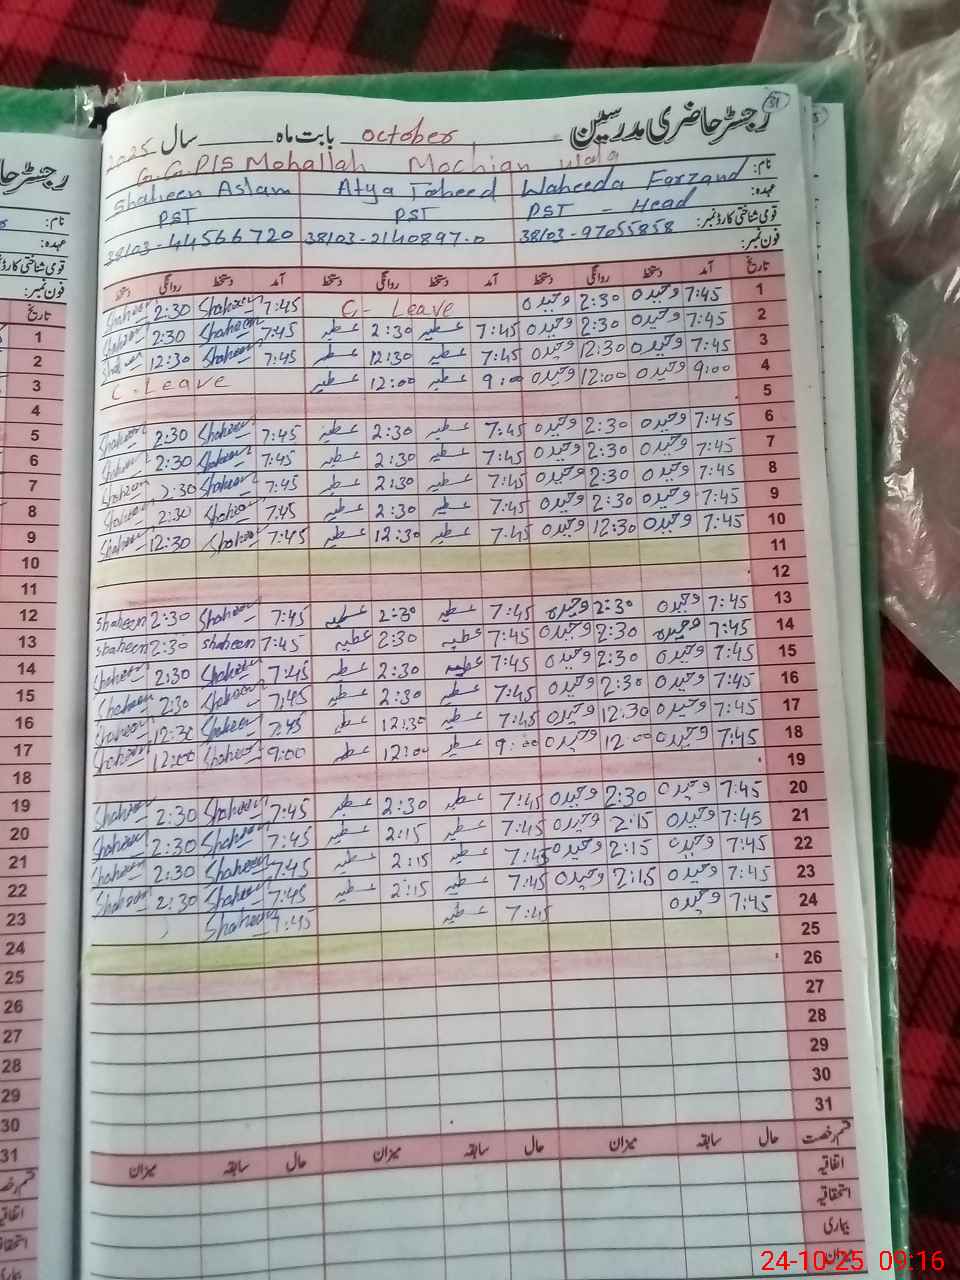 رجسٹر حاضری مدرسین بابت ماہ October سال 2025
31
G.G.P/S Mohallah Mochian wala
نام: Waheeda Farzand Atya Toheed Shaheen Aslam
عہدہ: PST - Head PST PST
قومی شناختی کارڈ نمبر: 38103-97055858 38103-2140897-0 38103-44566720
فون نمبر:
تاریخ آمد دستخط روانگی دستخط آمد دستخط روانگی دستخط آمد دستخط روانگی دستخط
1 7:45 وحیدہ 2:30 وحیدہ C- Leave 7:45 Shaheen 2:30 Shaheen
2 7:45 وحیدہ 2:30 وحیدہ 7:45 عطیہ 2:30 عطیہ 7:45 Shaheen 2:30 Shaheen
3 7:45 وحیدہ 12:30 وحیدہ 7:45 عطیہ 12:30 عطیہ 7:45 Shaheen 12:30 Shaheen
4 9:00 وحیدہ 12:00 وحیدہ 9:00 عطیہ 12:00 عطیہ C. Leave
5
6 7:45 وحیدہ 2:30 وحیدہ 7:45 عطیہ 2:30 عطیہ 7:45 Shaheen 2:30 Shaheen
7 7:45 وحیدہ 2:30 وحیدہ 7:45 عطیہ 2:30 عطیہ 7:45 Shaheen 2:30 Shaheen
8 7:45 وحیدہ 2:30 وحیدہ 7:45 عطیہ 2:30 عطیہ 7:45 Shaheen 2:30 Shaheen
9 7:45 وحیدہ 2:30 وحیدہ 7:45 عطیہ 2:30 عطیہ 7:45 Shaheen 2:30 Shaheen
10 7:45 وحیدہ 12:30 وحیدہ 7:45 عطیہ 12:30 عطیہ 7:45 Shaheen 12:30 Shaheen
11
12
13 7:45 وحیدہ 2:30 وحیدہ 7:45 عطیہ 2:30 عطیہ 7:45 Shaheen 2:30 Shaheen
14 7:45 وحیدہ 2:30 وحیدہ 7:45 عطیہ 2:30 عطیہ 7:45 shaheen 2:30 shaheen
15 7:45 وحیدہ 2:30 وحیدہ 7:45 عطیہ 2:30 عطیہ 7:45 Shaheen 2:30 Shaheen
16 7:45 وحیدہ 2:30 وحیدہ 7:45 عطیہ 2:30 عطیہ 7:45 Shaheen 2:30 Shaheen
17 7:45 وحیدہ 12:30 وحیدہ 7:45 عطیہ 12:30 عطیہ 7:45 Shaheen 12:30 Shaheen
18 7:45 وحیدہ 12:00 وحیدہ 9:00 عطیہ 12:00 عطیہ 9:00 Shaheen 12:00 Shaheen
19
20 7:45 وحیدہ 2:30 وحیدہ 7:45 عطیہ 2:30 عطیہ 7:45 Shaheen 2:30 Shaheen
21 7:45 وحیدہ 2:15 وحیدہ 7:45 عطیہ 2:15 عطیہ 7:45 Shaheen 2:30 Shaheen
22 7:45 وحیدہ 2:15 وحیدہ 7:45 عطیہ 2:15 عطیہ 7:45 Shaheen 2:30 Shaheen
23 7:45 وحیدہ 2:15 وحیدہ 7:45 عطیہ 2:15 عطیہ 7:45 Shaheen 2:30 Shaheen
24 7:45 وحیدہ 7:45 عطیہ 7:45 Shaheen
25
26
27
28
29
30
31
قسم رخصت حال سابقہ میزان حال سابقہ میزان حال سابقہ میزان
اتفاقیہ
استحقاقیہ
بیماری
میزان
رجسٹر حا
نام:
عہدہ:
قومی شناختی کارڈ
فون نمبر:
تاریخ
1
2
3
4
5
6
7
8
9
10
11
12
13
14
15
16
17
18
19
20
21
22
23
24
25
26
27
28
29
30
31
24-10-25 09:16